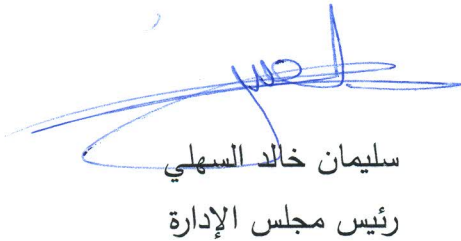 سليمان خالد السهلي
رئيس مجلس الإدارة